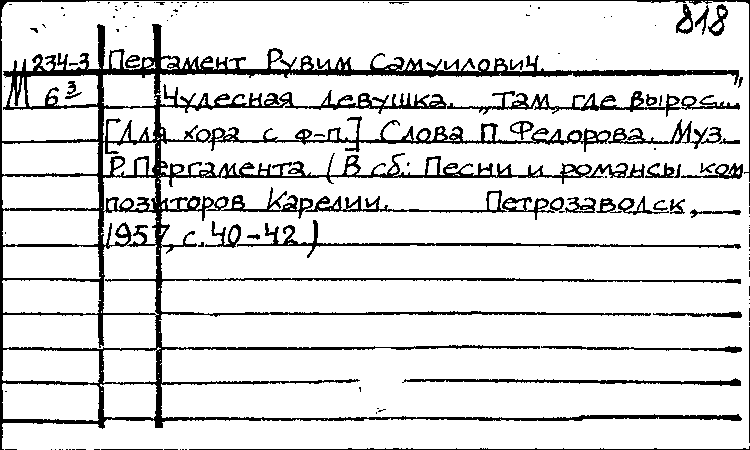 818
М 234-3 Пергамент, Рувим Самуилович.
6 3 Чудесная девушка. „Там, где вырос..."
[Для хора с ф-п.] Слова П. Федорова. Муз.
Р. Пергамента. (В сб.: Песни и романсы ком-
позиторов Карелии. Петрозаводск,
1957, с. 40-42.)